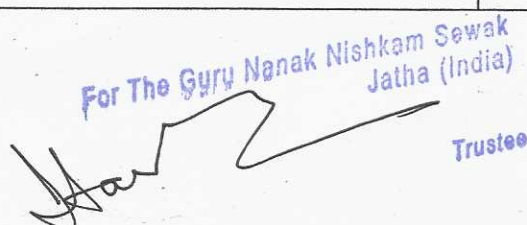 For The Guru Nanak Nishkam Sewak
Jatha (India)
Trustee